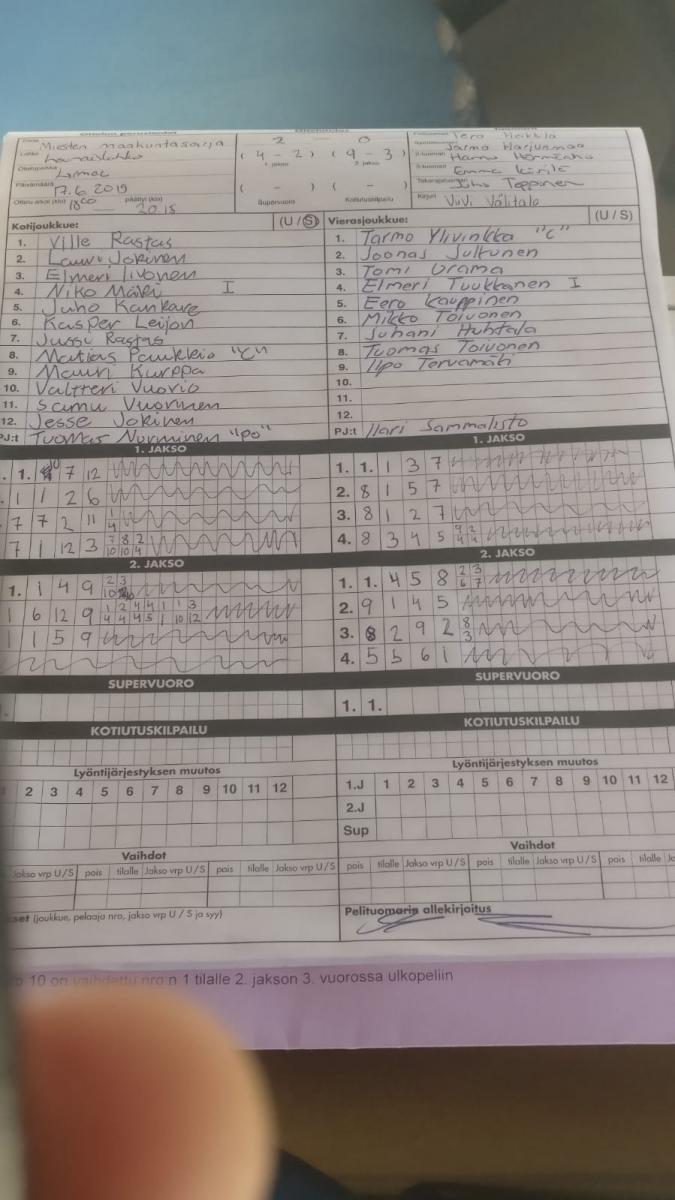 Miesten maakuntasarja
2 — 0
Lohko
(4 - 2) (9 - 3)
Jarmo Harjunmaa
1. jakso 2. jakso
Päivämäärä 17.6 2019
( - ) ( - )
Ottelu alkoi (klo) 1800 päättyi (klo) 20.15
Supervuoro Kotiutuskilpailu
Kirjuri ViiVi Välitalo
Kotijoukkue: (U / S)
Vierasjoukkue: (U / S)
1. Ville Rastas
1. Tarmo Ylivinkka "C"
2. Lauri Jokinen
2. Joonas Jultunen
3. Elmeri Iivonen
3. Tomi Urama
4. Niko Mäki I
4. Elmeri Tuukkanen I
5. Juho Kankare
5. Eero Kauppinen
6. Kasper Leijon
6. Mikko Toivonen
7. Jussi Rastas
7. Juhani Huhtala
8. Matias Paukkio "C"
8. Tuomas Toivonen
9. Mauri Kurppa
9. Ilpo Tervamäki
10. Valtteri Vuorio
10.
11. Samu Vuorinen
11.
12. Jesse Jokinen
12.
PJ:t Tuomas Nurminen "Ipo"
PJ:t Ilari Sammalisto
1. JAKSO
1. JAKSO
1. 7 12
1. 1. 1 3 7
1 1 2 6
2. 8 1 5 7
7 7 2 11 1/4
3. 8 1 2 7
7 1 12 3 7/10 8/10 2/4
4. 8 3 4 5 9/4 2/4
2. JAKSO
2. JAKSO
1. 1 4 9
1. 1. 4 5 8 2/6 3/7
1 6 12 9 1/4 2/4 4/4 4/5 1/1 1/10 3/12
2. 9 1 4 5
1 1 5 9
3. 8 2 9 2 8/3
4. 5 5 6 1
SUPERVUORO
SUPERVUORO
1. 1.
KOTIUTUSKILPAILU
KOTIUTUSKILPAILU
Lyöntijärjestyksen muutos
Lyöntijärjestyksen muutos
1 2 3 4 5 6 7 8 9 10 11 12
1.J 1 2 3 4 5 6 7 8 9 10 11 12
2.J
Sup
Vaihdot
Vaihdot
Jakso vrp U / S pois tilalle Jakso vrp U / S pois tilalle Jakso vrp U / S
pois tilalle Jakso vrp U / S pois tilalle Jakso vrp U / S pois tilalle
(joukkue, pelaaja nro, jakso vrp U / S ja syy)
Pelituomarin allekirjoitus
10 on vaihdettu nro:n 1 tilalle 2. jakson 3. vuorossa ulkopeliin